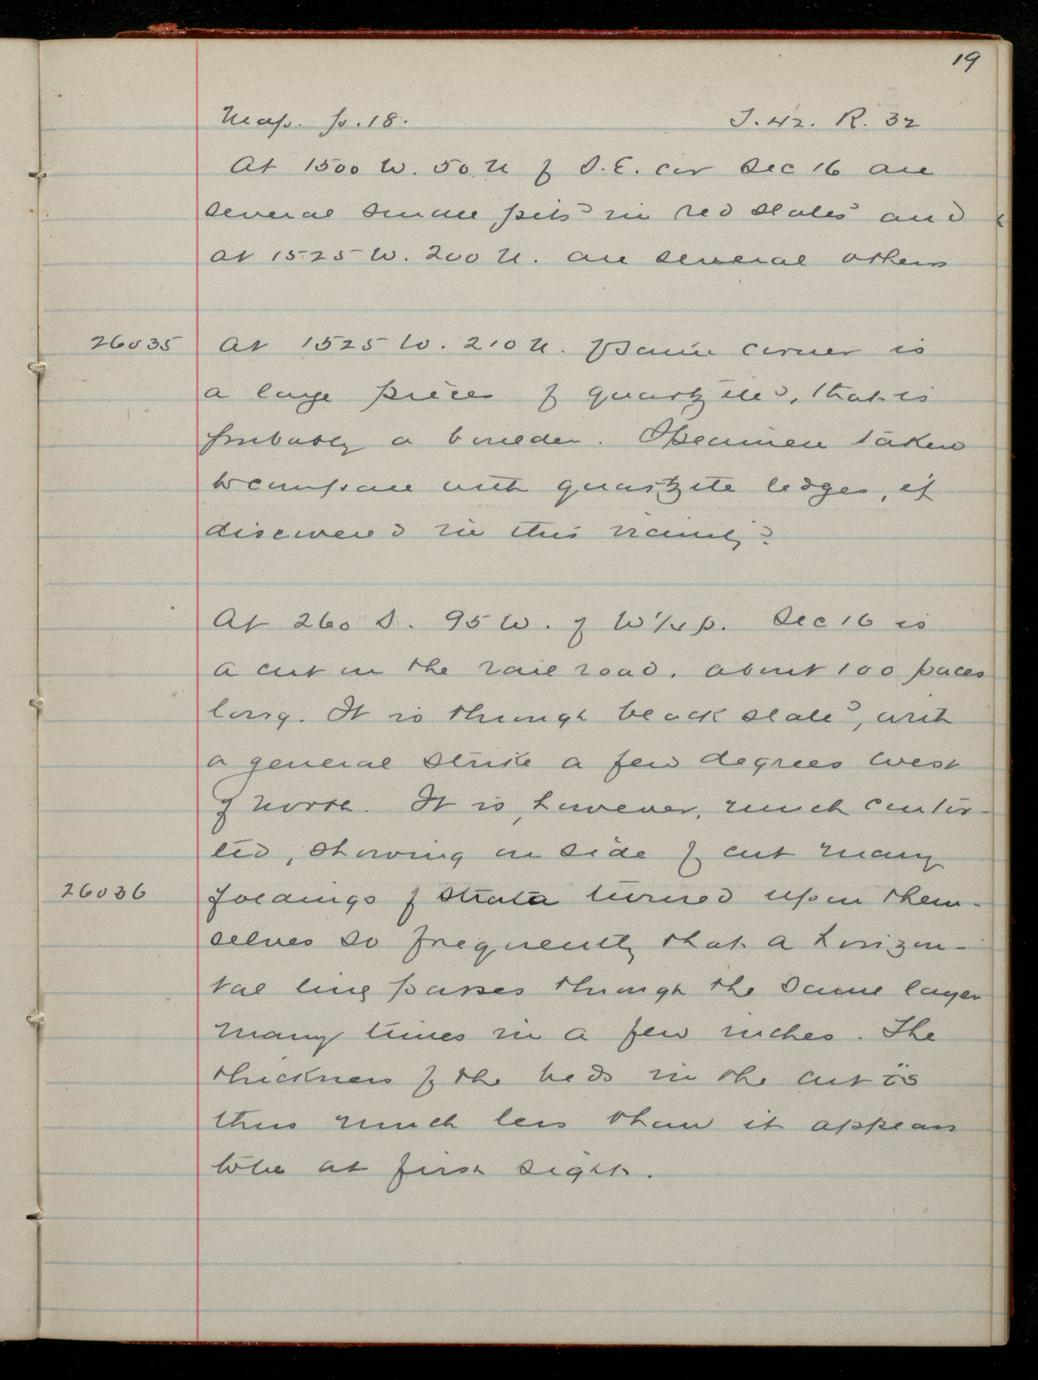 19
Map. p. 18. T. 42. R. 32
At 1500 W. 50 N of S.E. cor Sec 16 are
several small pits in red slates and
at 1525 W. 200 N. are several others
26035 At 1525 W. 210 N. of same corner is
a large piece of quartzite, that is
probably a boulder. Specimen taken
to compare with quartzite ledges, if
discovered in this vicinity.
At 260 S. 95 W. of W 1/4 p. Sec 16 is
a cut on the rail road. about 100 paces
long. It is through black slate, with
a general strike a few degrees west
of north. It is, however, much contor-
ted, showing on side of cut many
26036 foldings of strata turned upon them-
selves so frequently that a horizon-
tal line passes through the same layer
many times in a few inches. The
thickness of the beds in the cut is
thus much less than it appears
to be at first sight.